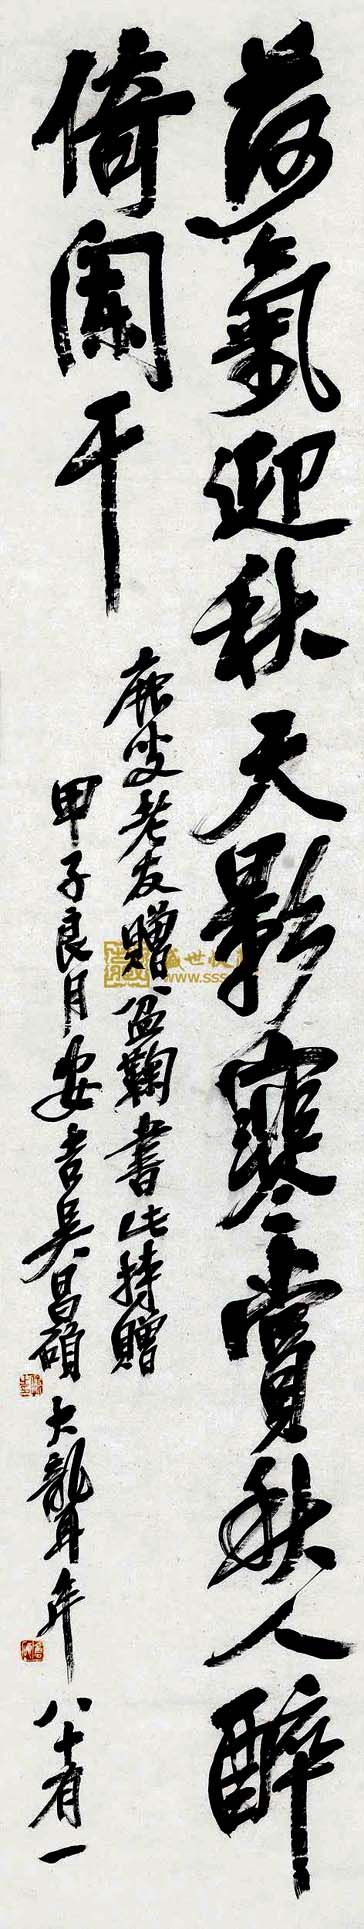 荷氣迎秋天影寒賞秋人醉
倚闌干
老友贈盆鞠書此持贈
甲子良月安吉吳昌碩大聾年八十有一
盛世收藏
www.sss